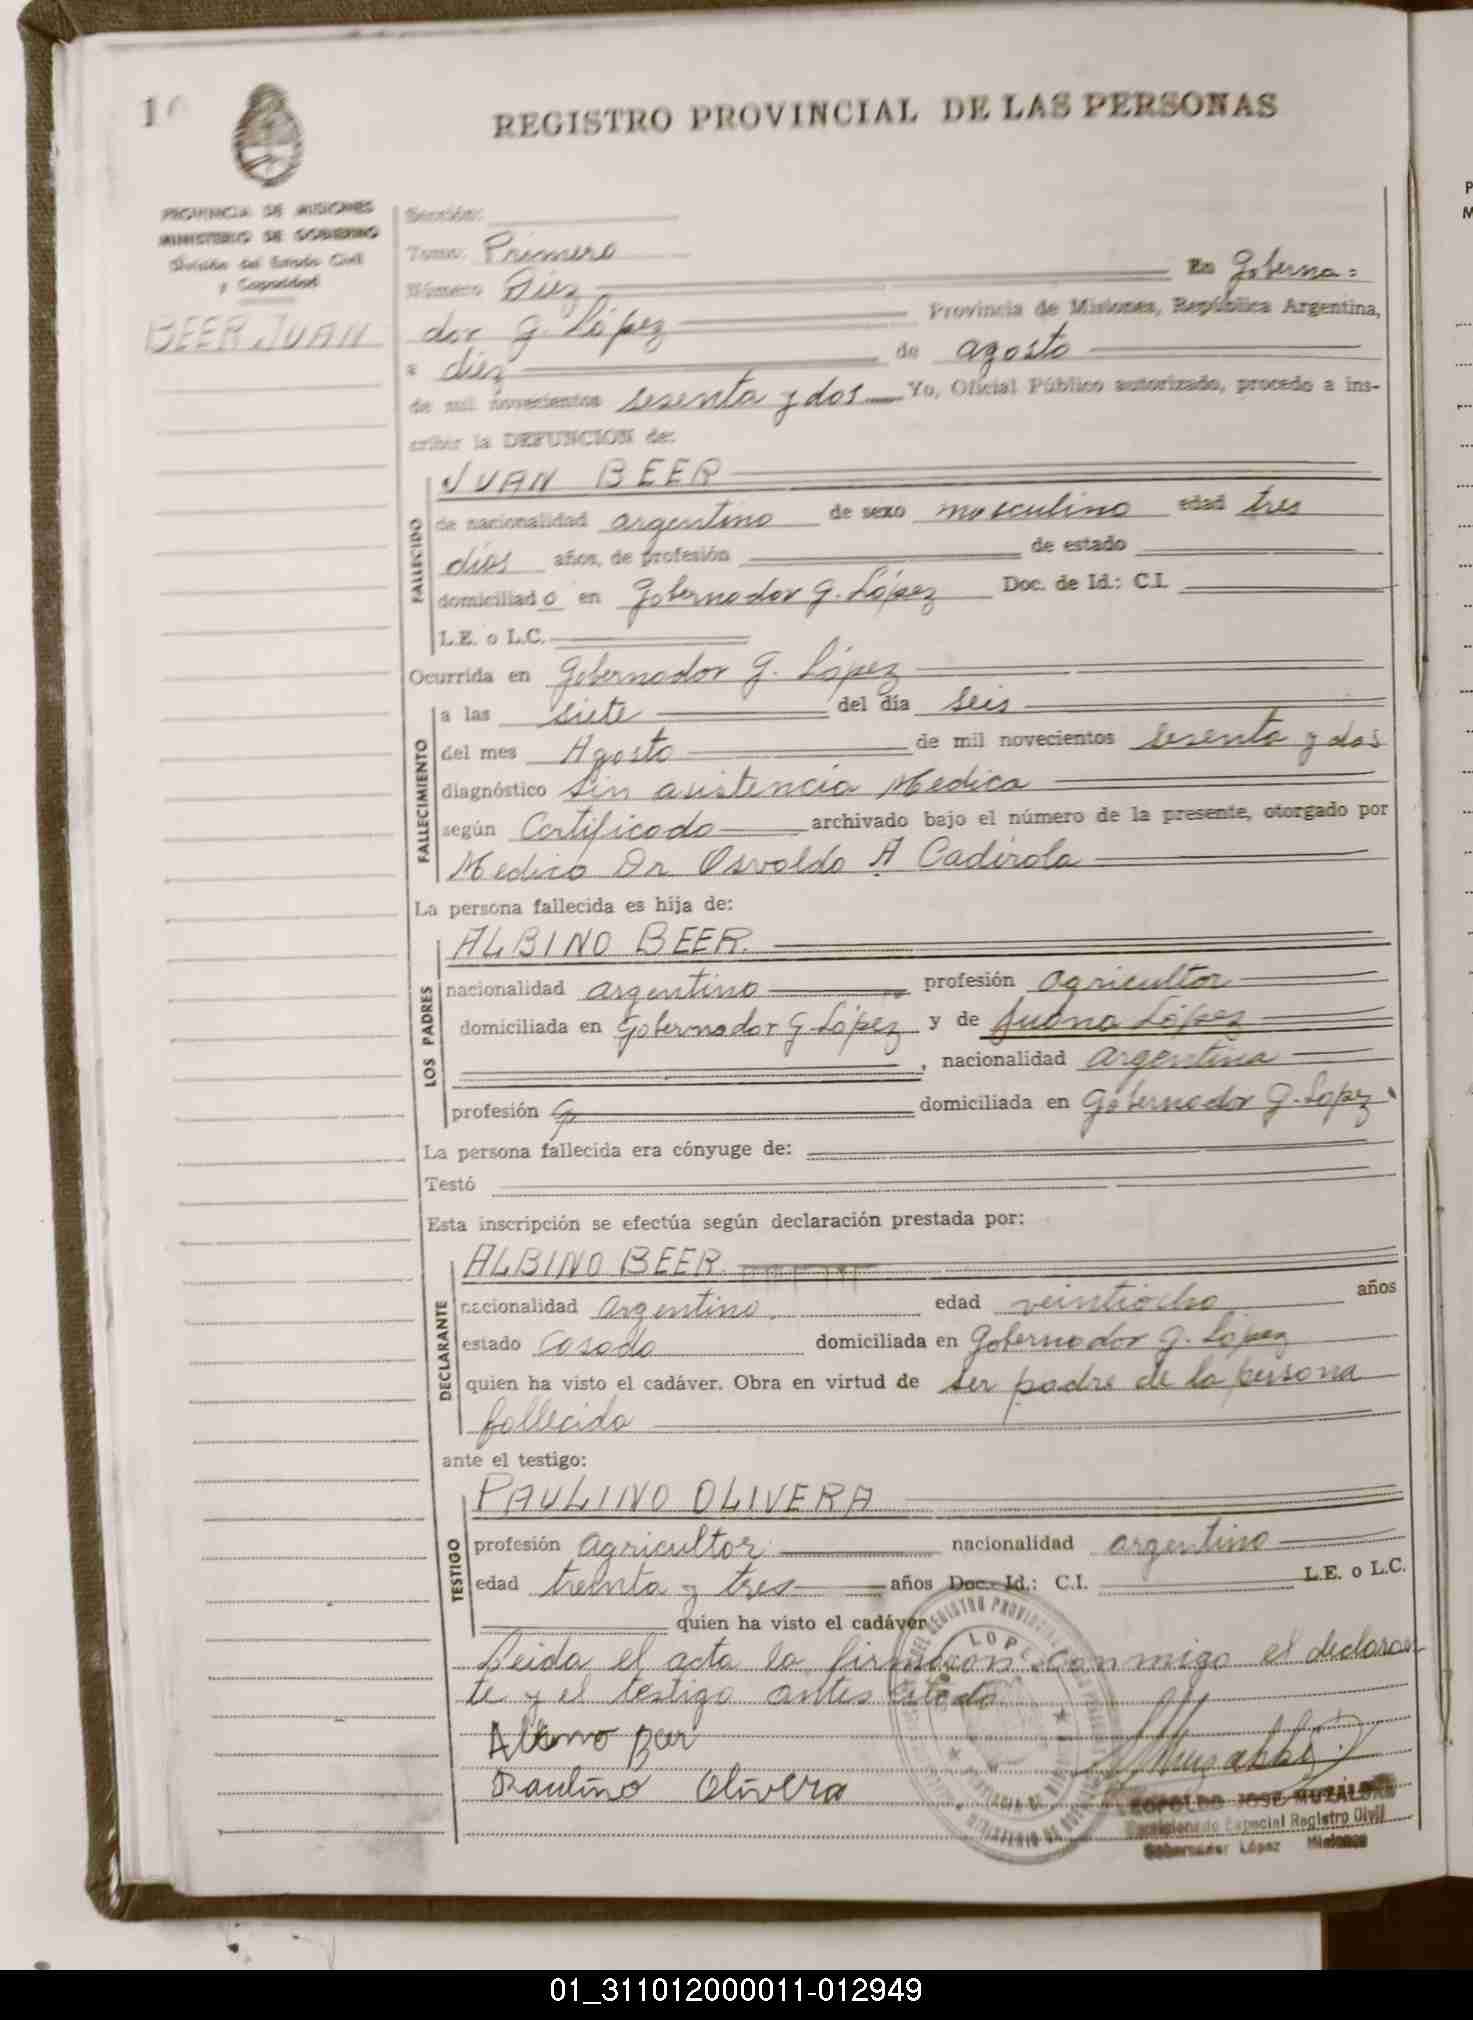 REGISTRO PROVINCIAL DE LAS PERSONAS
PROVINCIA DE MISIONES
MINISTERIO DE GOBIERNO
División del Estado Civil
y Capacidad
BEER JUAN
Sección:
Tomo: Primero
Número Diez En Goberna=
dor G. López Provincia de Misiones, República Argentina,
a diez de agosto
de mil novecientos sesenta y dos Yo, Oficial Público autorizado, procedo a ins-
cribir la DEFUNCION de:
FALLECIDO
JUAN BEER
de nacionalidad argentino de sexo masculino edad tres
días años, de profesión de estado
domiciliado en Gobernador G. López Doc. de Id.: C.I.
L.E. o L.C.
Ocurrida en Gobernador G. López
FALLECIMIENTO
a las siete del día seis
del mes Agosto de mil novecientos sesenta y dos
diagnóstico sin asistencia Medica
según Certificado archivado bajo el número de la presente, otorgado por
Medico Dr. Osvaldo A Cadirola
La persona fallecida es hija de:
LOS PADRES
ALBINO BEER
nacionalidad argentino profesión agricultor
domiciliada en Gobernador G. López y de Juana López
, nacionalidad argentina
profesión domiciliada en Gobernador G. Lopez
La persona fallecida era cónyuge de:
Testó
Esta inscripción se efectúa según declaración prestada por:
DECLARANTE
ALBINO BEER
nacionalidad argentino edad veintiocho años
estado casado domiciliada en Gobernador G. López
quien ha visto el cadáver. Obra en virtud de ser padre de la persona
fallecida
ante el testigo:
TESTIGO
PAULINO OLIVERA
profesión agricultor nacionalidad argentino
edad treinta y tres años Doc. Id.: C.I. L.E. o L.C.
quien ha visto el cadáver
Leida el acta la firmaron conmigo el declaran
te y el testigo antes citado
Albino Beer
Paulino Olivera
LEOPOLDO JOSE MUZALDAR
Comisionado Especial Registro Civil
Gobernador López Misiones
01_311012000011-012949